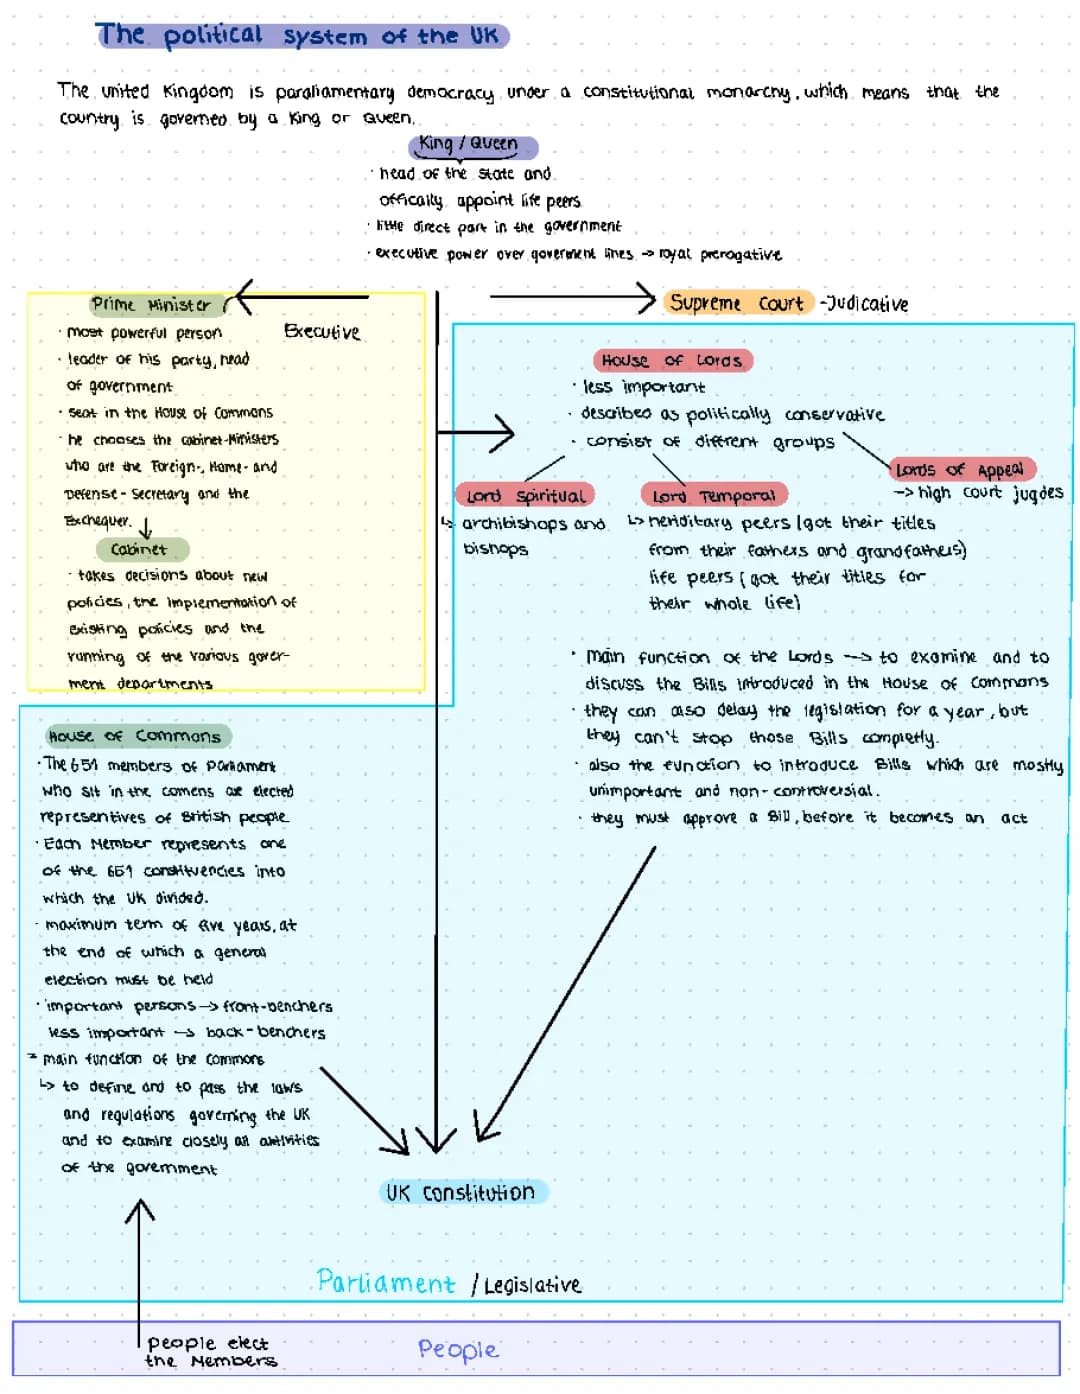 The political system of the UK
The united Kingdom is parahamentary democracy under a constitutional monarchy, which means that the
country is governed by a King or Queen.
King / Queen
· head of the state and
offically appoint life peers
· little direct part in the government
· executive power over goverment lines → royal prerogative
Prime Minister
Executive
Supreme Court -Judicative
· most powerful person
· leader of his party, head
of government
· seat in the House of Commons
· he chooses the cabinet-Ministers
who are the Foreign-, Home- and
Defense- Secretary and the
Exchequer.
Cabinet
· takes decisions about new
policies, the implementation of
existing policies and the
running of the various gover-
ment departments
House of Lords
· less important
· described as politically conservative
· consist of different groups
Lord Spiritual
↳ archibishops and
bishops
Lord Temporal
↳ heriditary peers (got their titles
from their fathers and grandfathers)
life peers (got their titles for
their whole life)
Lords of Appeal
→ high court jugdes
· main function of the Lords → to examine and to
discuss the Bills introduced in the House of Commons
· they can also delay the legislation for a year, but
they can't stop those Bills completly.
· also the function to introduce Bills which are mostly
unimportant and non-controversial.
· they must approve a Bill, before it becomes an act
House of Commons
· The 651 members of Parliament
who sit in the comens are elected
representives of British people
· Each Member represents one
of the 651 constituencies into
which the UK divided.
· maximum term of five years, at
the end of which a general
election must be held
· important persons → front-benchers
less important → back-benchers
· main function of the Commons
↳ to define and to pass the laws
and regulations governing the UK
and to examine closely all activities
of the government
UK constitution
Parliament / Legislative
People elect
the Members
People